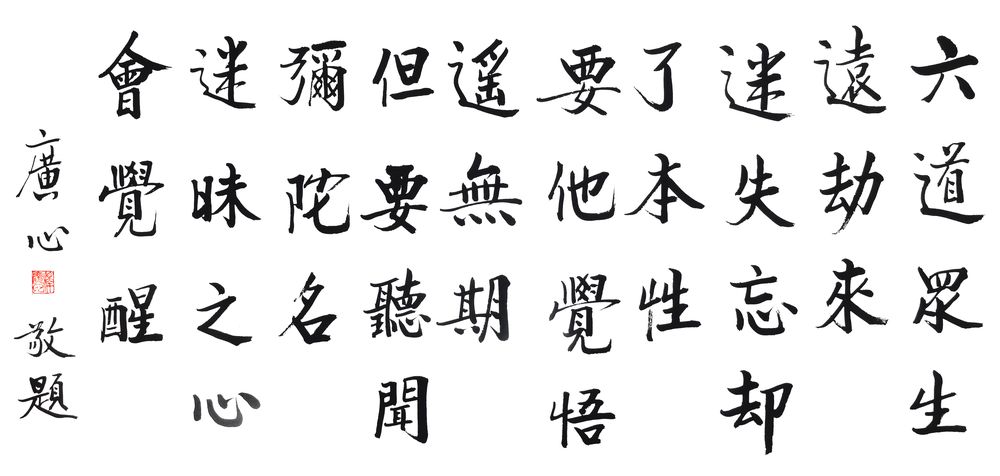 六道眾生
遠劫來
迷失忘却
了本性
要他覺悟
遥無期
但要聽聞
彌陀名
迷昧之心
會覺醒
廣心敬題